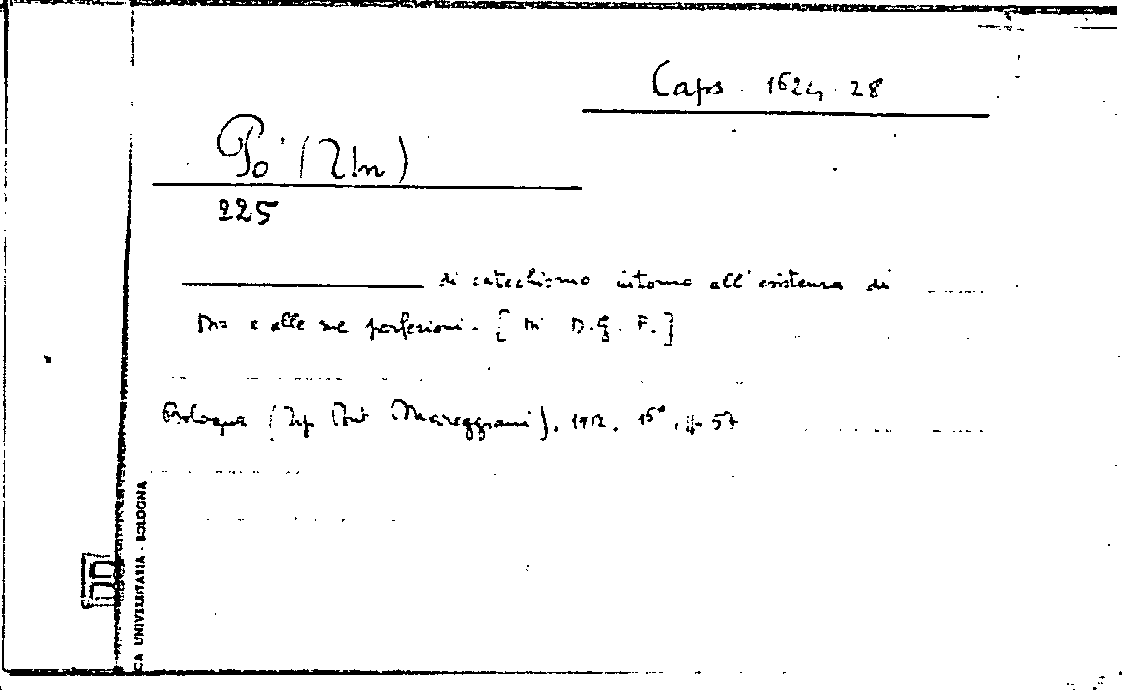 Caps. 1624, 28
Po' (Un)
225
di catechismo intorno all'esistenza di
Dio e alle sue perfezioni. [Di D. G. F.]
Bologna (Tip. Pont. Mareggiani), 1912, 16°, p. 57
CA UNIVERSITARIA - BOLOGNA